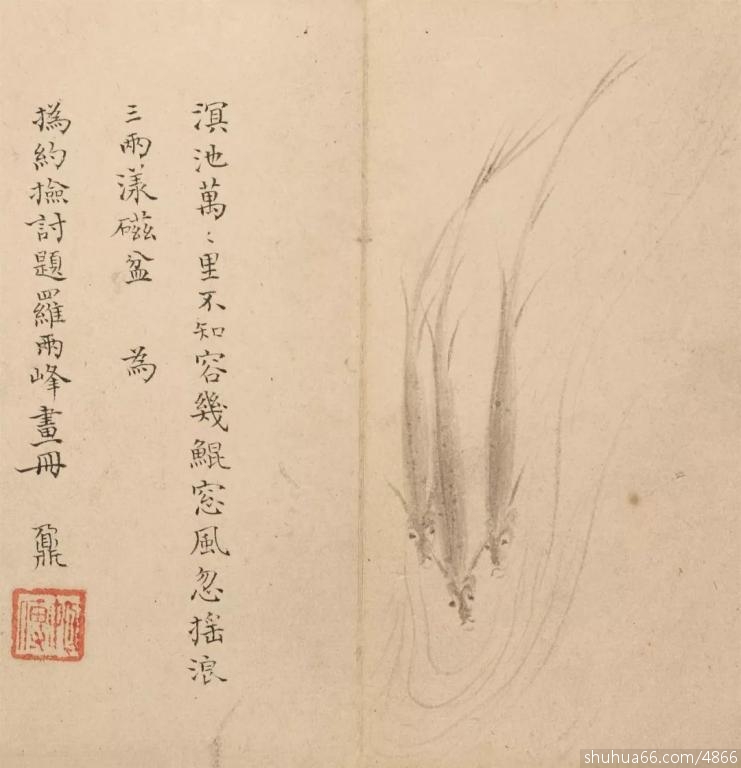 溟池萬〻里不知容幾鯤窓風忽揺浪
三兩漾磁盆 為
撝約撿討題羅兩峰畫冊 鼐
shuhua66.com/4866